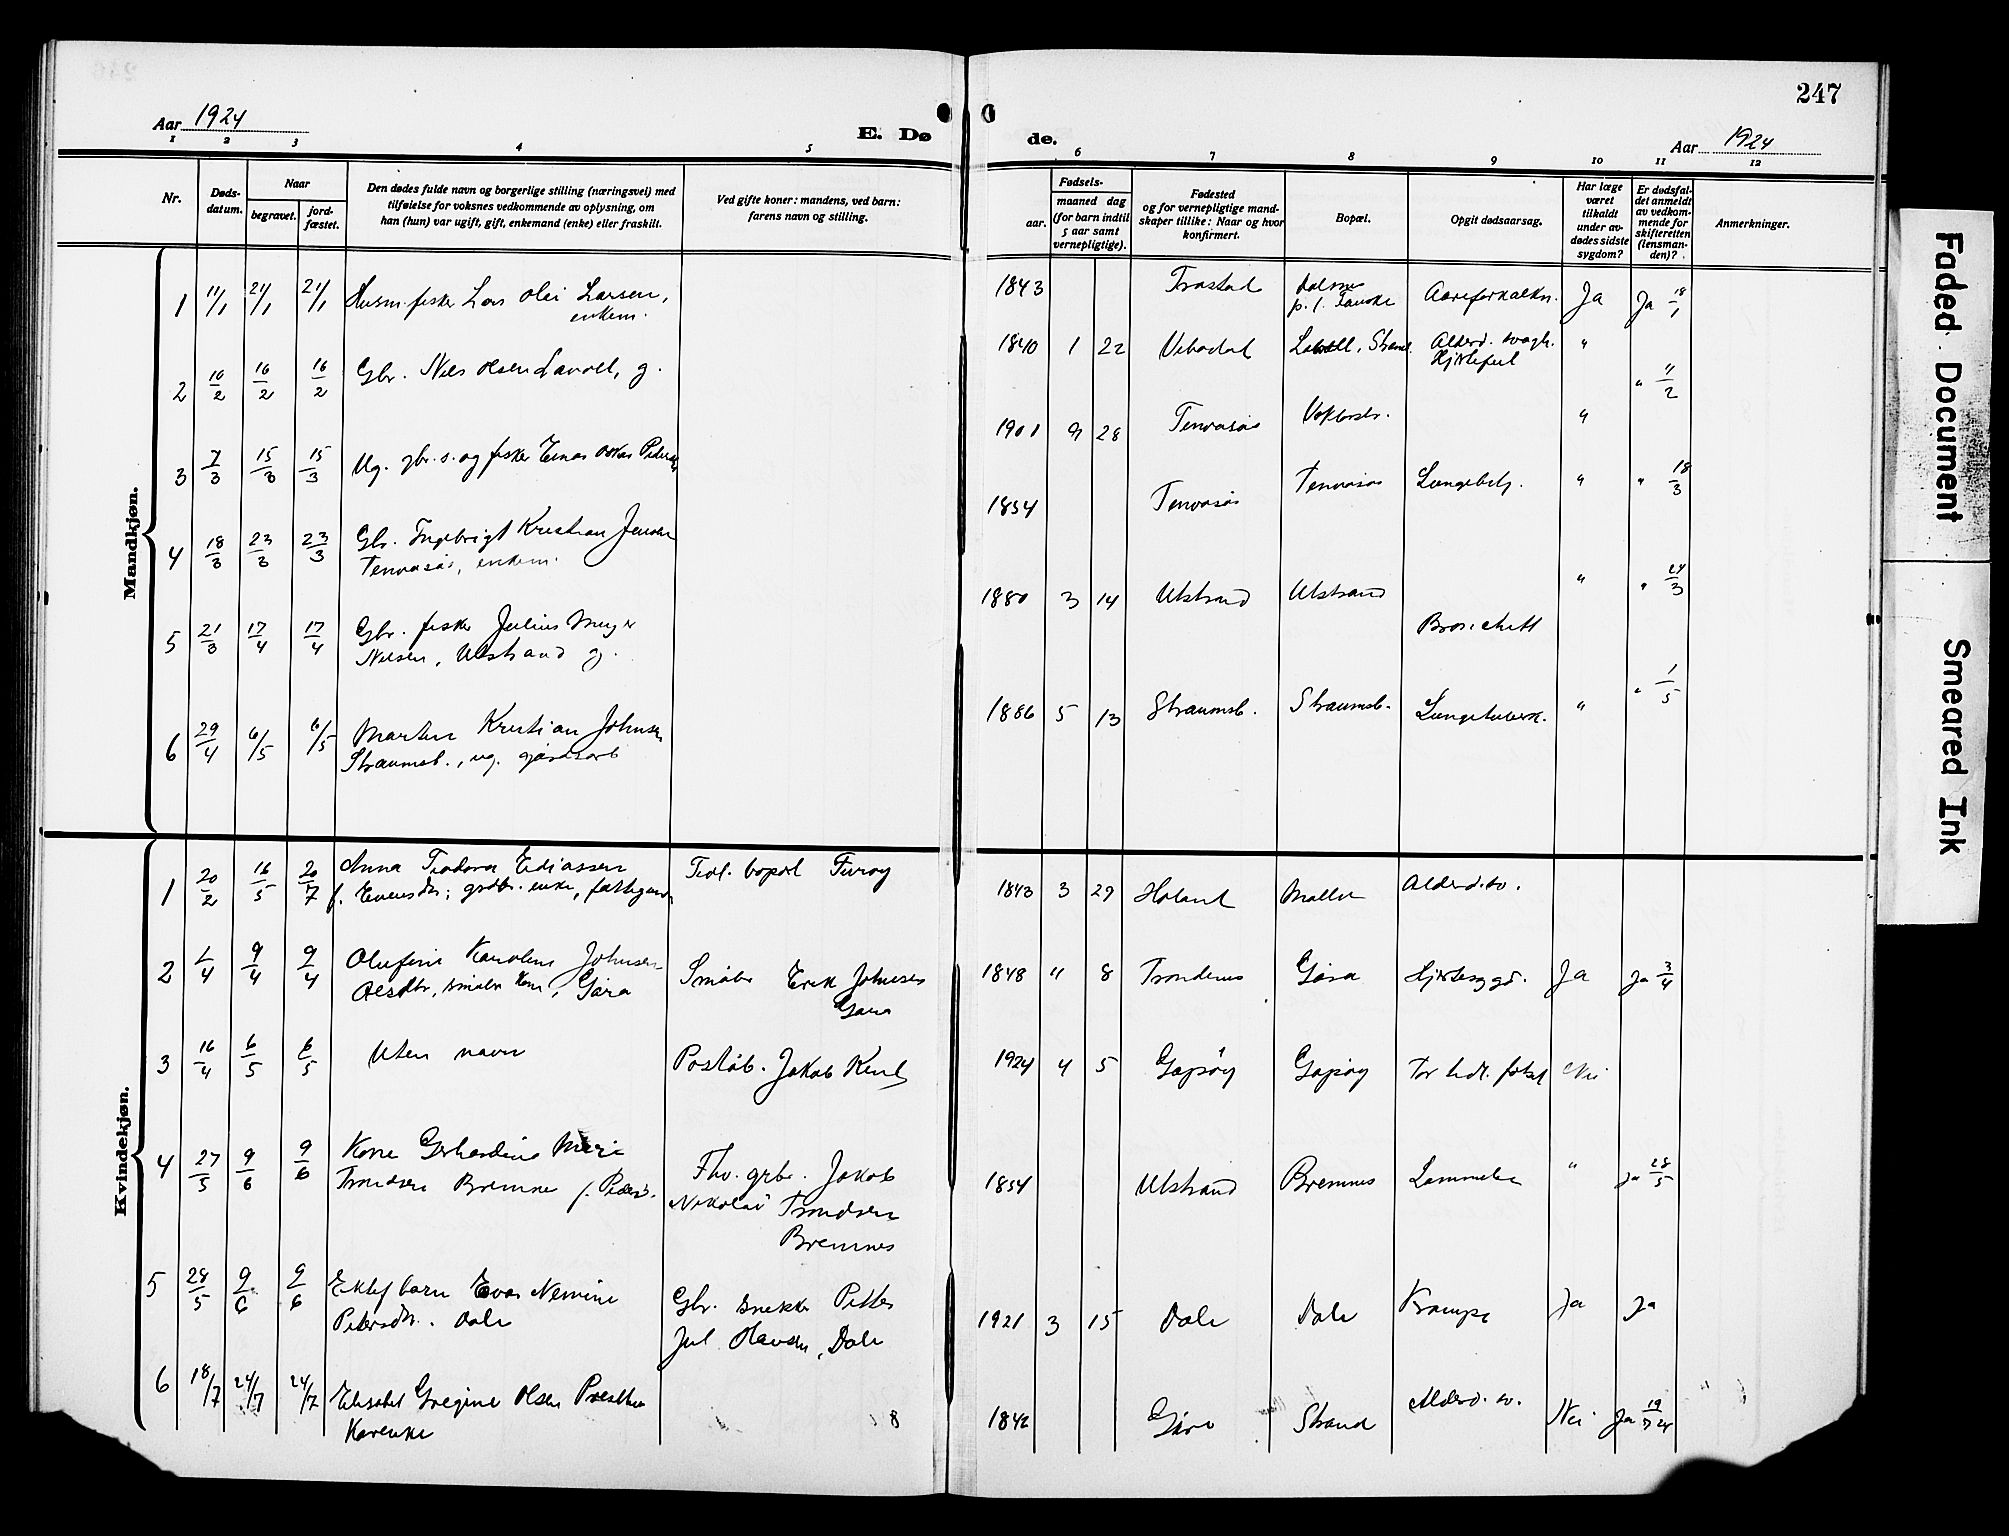 247
Aar 1924
E. Døde.
Aar 1924
1 2 3 4 5 6 7 8 9 10 11 12
Nr.
Døds-
datum.
Naar
begravet.
jord-
fæstet.
Den dødes fulde navn og borgerlige stilling (næringsvei) med
tilføielse for voksnes vedkommende av oplysning, om
han (hun) var ugift, gift, enkemand (enke) eller fraskilt.
Ved gifte koner: mandens, ved barn:
farens navn og stilling.
Fødsels-
aar.
maaned dag
(for barn indtil
5 aar samt
vernepligtige).
Fødested
og for vernepligtige mand-
skaper tillike: Naar og hvor
konfirmert.
Bopæl.
Opgit dødsaarsag.
Har læge
været
tilkaldt
under av-
dødes sidste
sygdom?
Er dødsfal-
det anmeldt
av vedkom-
mende for
skifteretten
(lensman-
den)?
Anmerkninger.
Mandkjøn.
1 11/1 21/1 21/1 Husm. fisker Lars Olai Larsen,
enkem.
1843 Trastad p. t. Aareforkalkn. Ja Ja 18/1
2 10/2 16/2 16/2 Gbr. Nils Olsen Lavoll, g.
1840 1 22 Vebodal Lavoll, Strand Alderd. svagh.
Hjertefeil " " 11/2
3 7/3 15/3 15/3 Ug. gbr. s. og fisker Einar Oskar Peders
1901 9 28 Tenvasás "
4 18/3 23/3 23/3 Gbr. Ingebrigt Kristian Jensen
Tenvasás, enkem.
1854 Tenvasás Tenvasás Lungebet. " " 18/3
5 21/3 17/4 17/4 Gbr. fisker Julius Meyer
Nilsen, Utstrand g.
1880 3 14 Utstrand Utstrand " " 24/3
6 29/4 6/5 6/5 Martin Kristian Johnsen
Straumsb., ug. gaardsarb
1886 5 13 Straumsb. Straumsb. Lungetuberk. " " 1/5
Kvindekjøn.
1 20/2 16/5 20/7 Anna Teodora Ediassen
f. Evensdtr; grdbr. enke, fattigund.
Tidl. bopæl
1843 3 29 Haland Alderd. sv.
2 1/4 9/4 9/4 Olufine Karoline Johnsen
Olsdtr, småbr kone, Gåra
Småbr Erik Johnsen
Gara
1848 11 8 Trondenes Gåra Hjertesygd. Ja Ja 3/4
3 16/4 6/5 6/5 Uten navn
Poståb. Jakob
1924 4 5 Gapøy Gapøy For tidl. fødsel Nei
4 27/5 9/6 9/6 Kone Gerhardine Marie
Trondsen Bremnes f. Peders.
Fhv. grbr. Jakob
Nikolai Trondsen
Bremnes
1854 Utstrand Bremnes Lammelse " Ja 28/5
5 28/5 9/6 9/6 Ektef barn Eva Nemine
Petersdtr. Dale
Gbr. snekker Petter
Jul Olavsen, Dale
1921 3 15 Dale Dale Krampe Ja Ja
6 18/7 24/7 24/7 Elisabet Gregine Olsen
1842 Gåra Strand Alderd. sv. Nei Ja 19/7 24
Faded Document
Smeared Ink